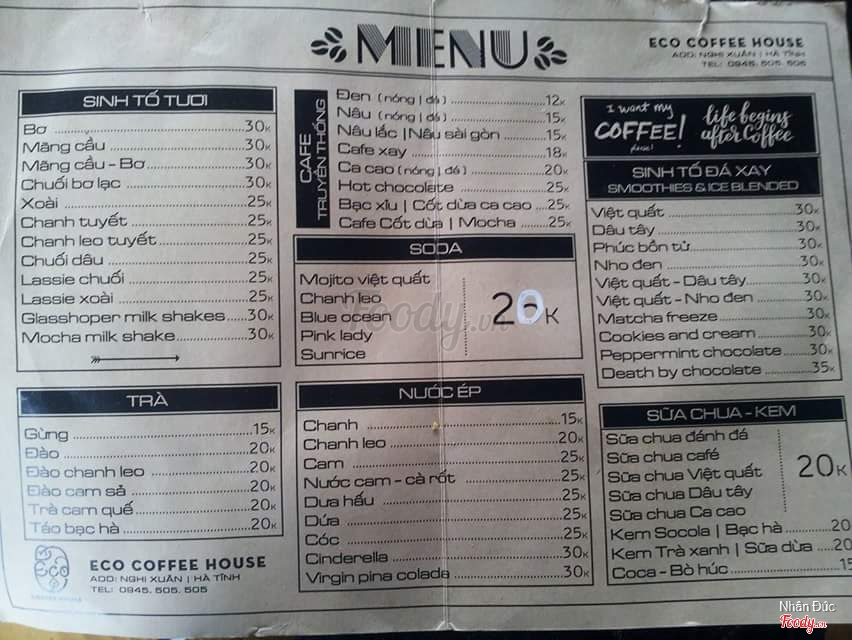 MENU
ECO COFFEE HOUSE
ADD: NGHI XUÂN | HÀ TĨNH
TEL: 0945. 505. 505
SINH TỐ TƯƠI
Bơ 30K
Mãng cầu 30K
Mãng cầu - Bơ 30K
Chuối bơ lạc 30K
Xoài 25K
Chanh tuyết 25K
Chanh leo tuyết 25K
Chuối dâu 25K
Lassie chuối 25K
Lassie xoài 25K
Glasshoper milk shakes 30K
Mocha milk shake 30K
TRÀ
Gừng 15K
Đào 20K
Đào chanh leo 20K
Đào cam sả 20K
Trà cam quế 20K
Táo bạc hà 20K
ECO COFFEE HOUSE
ADD: NGHI XUÂN | HÀ TĨNH
TEL: 0945. 505. 505
CAFE
TRUYỀN THỐNG
Đen (nóng | đá) 12K
Nâu (nóng | đá) 15K
Nâu lắc | Nâu sài gòn 15K
Cafe xay 18K
Ca cao (nóng | đá) 20K
Hot chocolate 25K
Bạc xỉu | Cốt dừa ca cao 25K
Cafe Cốt dừa | Mocha 25K
SODA
Mojito việt quất
Chanh leo
Blue ocean
Pink lady
Sunrice
20K
NƯỚC ÉP
Chanh 15K
Chanh leo 20K
Cam 25K
Nước cam - cà rốt 25K
Dưa hấu 25K
Dứa 25K
Cóc 25K
Cinderella 30K
Virgin pina colada 30K
I want my
COFFEE!
please!
life begins
after Coffee
SINH TỐ ĐÁ XAY
SMOOTHIES & ICE BLENDED
Việt quất 30K
Dâu tây 30K
Phúc bồn tử 30K
Nho đen 30K
Việt quất - Dâu tây 30K
Việt quất - Nho đen 30K
Matcha freeze 30K
Cookies and cream 30K
Peppermint chocolate 30K
Death by chocolate 35K
SỮA CHUA - KEM
Sữa chua đánh đá
Sữa chua café
Sữa chua Việt quất
Sữa chua Dâu tây
Sữa chua Ca cao
20K
Kem Socola | Bạc hà 20
Kem Trà xanh | Sữa dừa 20
Coca - Bò húc 15
Foody.vn
Nhân Đức
Foody.vn